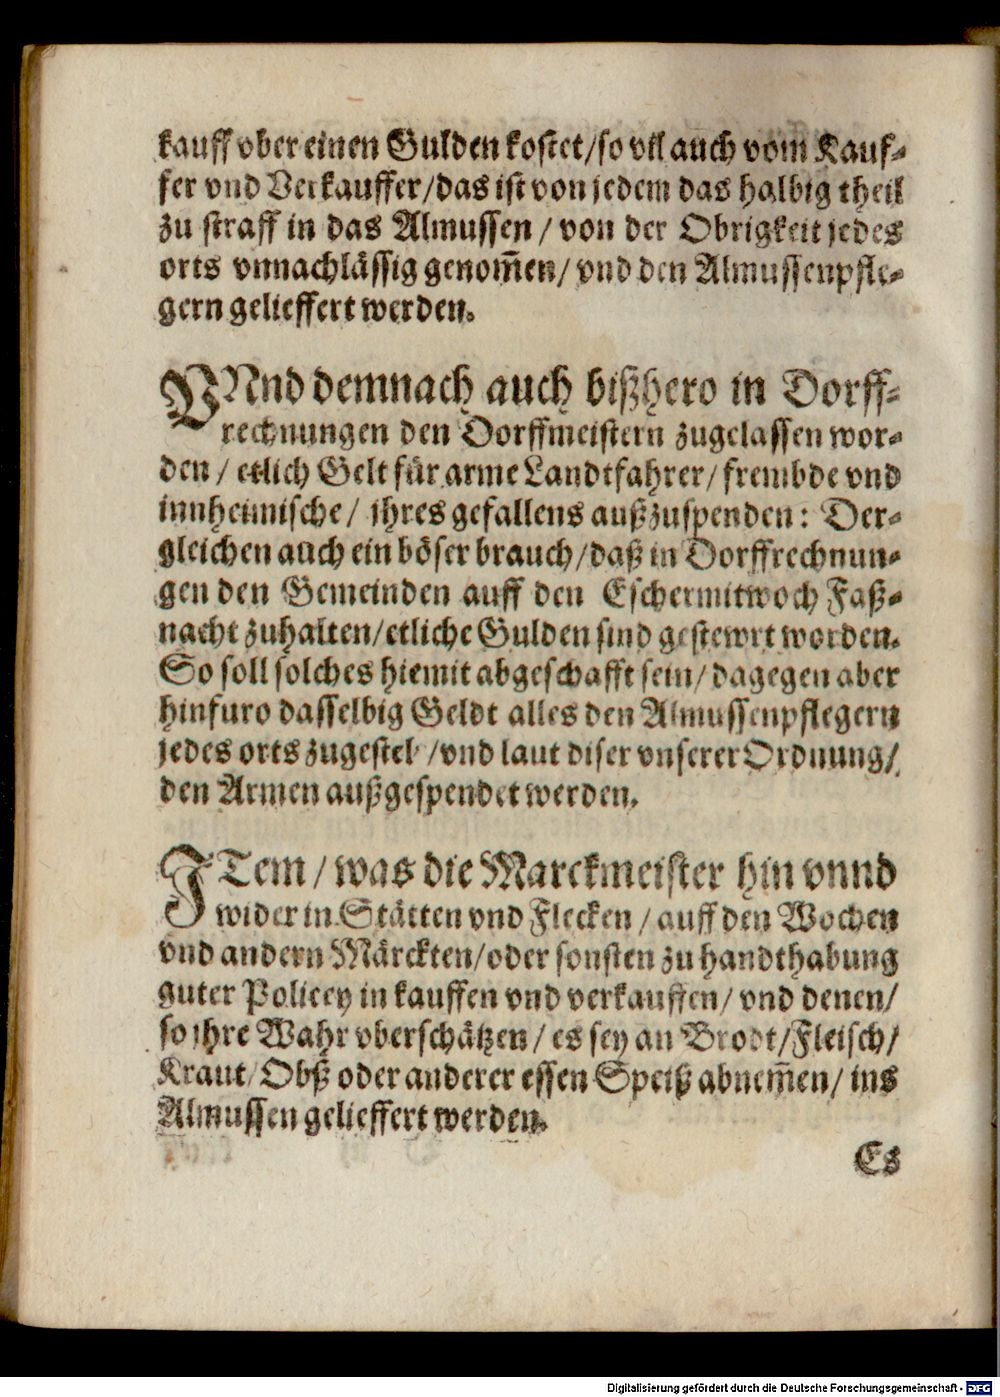 kauff vber einen Gulden kostet/so vil auch vom Kauf-
fer vnd Verkauffer/das ist von jedem das halbig theil
zu straff in das Almussen / von der Obrigkeit jedes
orts vnnachlässig genom̃en/ vnd den Almussenpfle-
gern gelieffert werden.
VNnd demnach auch bißhero in Dorff-
rechnungen den Dorffmeistern zugelassen wor-
den / etlich Gelt für arme Landtfahrer/ frembde vnd
innheimische/ ihres gefallens außzuspenden: Der-
gleichen auch ein böser brauch/daß in Dorffrechnun-
gen den Gemeinden auff den Eschermitwoch Faß-
nacht zuhalten/etliche Gulden sind gestewrt worden.
So soll solches hiemit abgeschafft sein/ dagegen aber
hinfuro dasselbig Geldt alles den Almussenpflegern
jedes orts zugestel /vnd laut diser vnserer Ordnung/
den Armen außgespendet werden.
ITem / was die Marckmeister hin vnnd
wider in Stätten vnd Flecken / auff den Wochen
vnd andern Märckten/oder sonsten zu handthabung
guter Policey in kauffen vnd verkauffen/ vnd denen/
so ihre Wahr vberschätzen / es sey an Brodt/Fleisch/
Kraut/Obß oder anderer essen Speiß abnem̃en/ ins
Almussen gelieffert werden.
Es
Digitalisierung gefördert durch die Deutsche Forschungsgemeinschaft - DFG